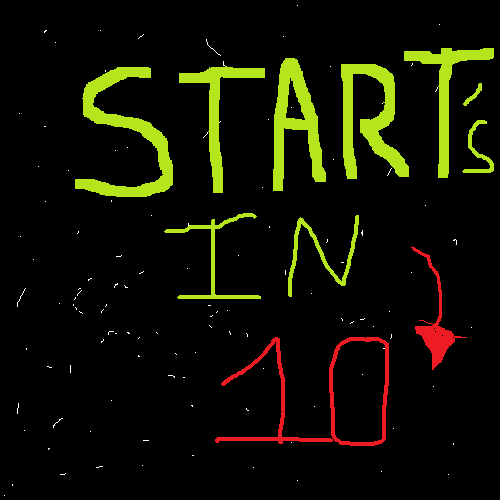 START's
IN
10